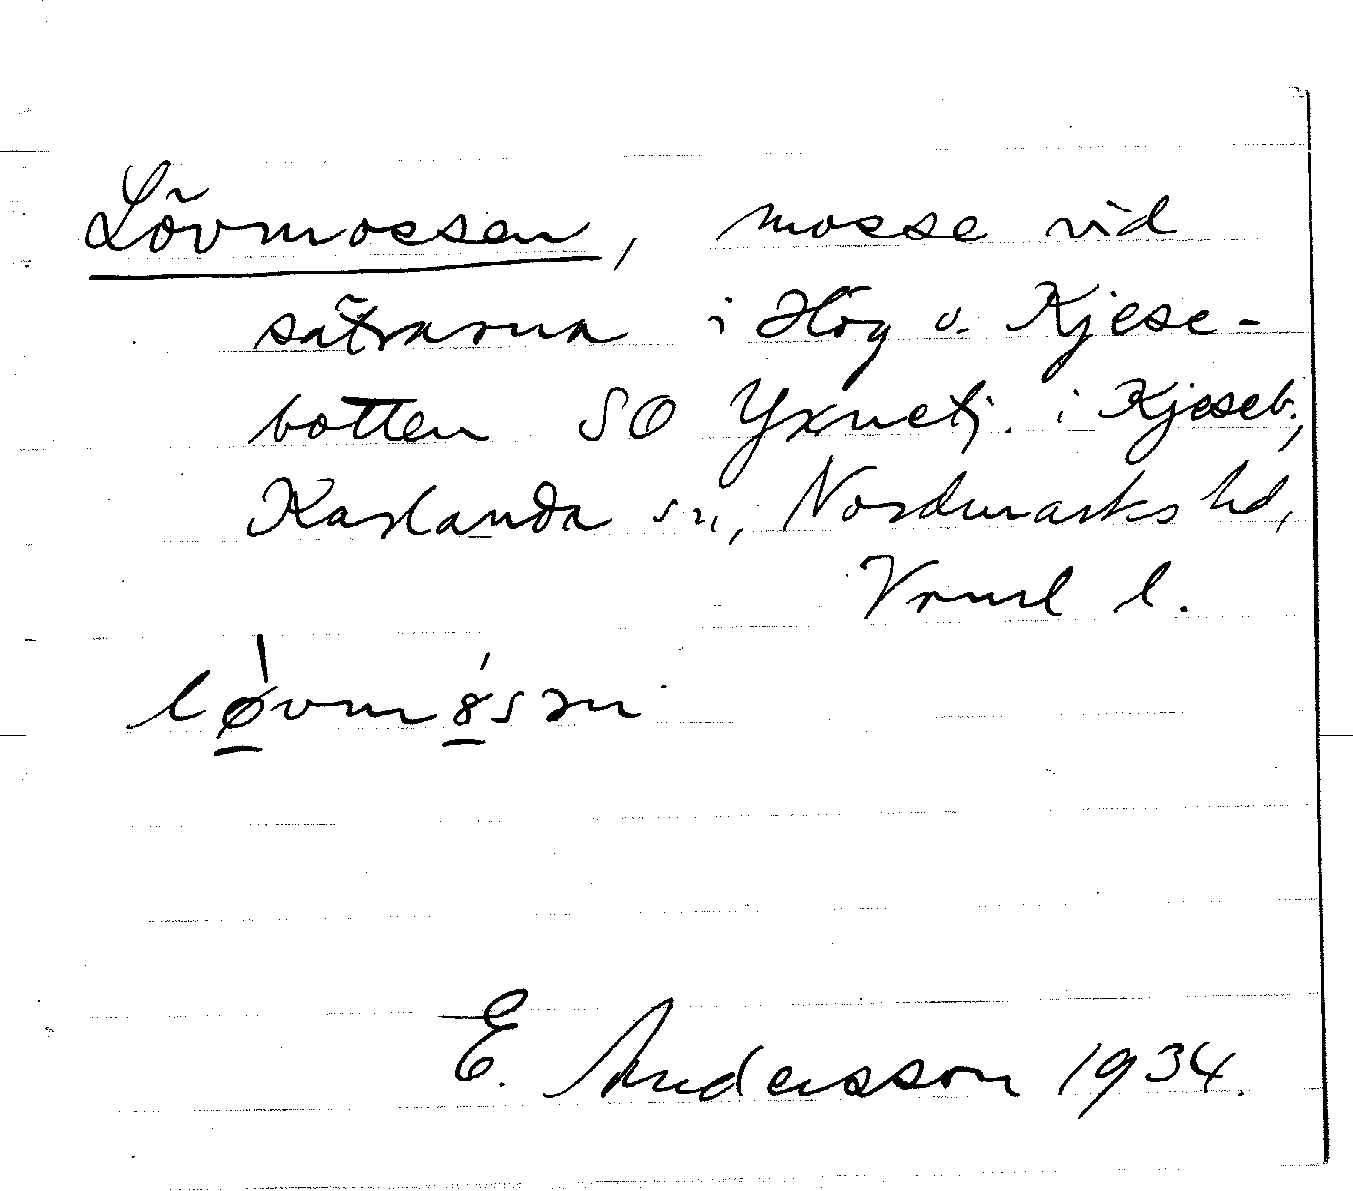 Lövmossen, mosse vid
sätrarna i Hög o. Kjese-
botten SO Yxnetj. i Kjeseb.,
Karlanda sn, Nordmarks hd,
Vrml l.
løvmøsən
E. Andersson 1934.